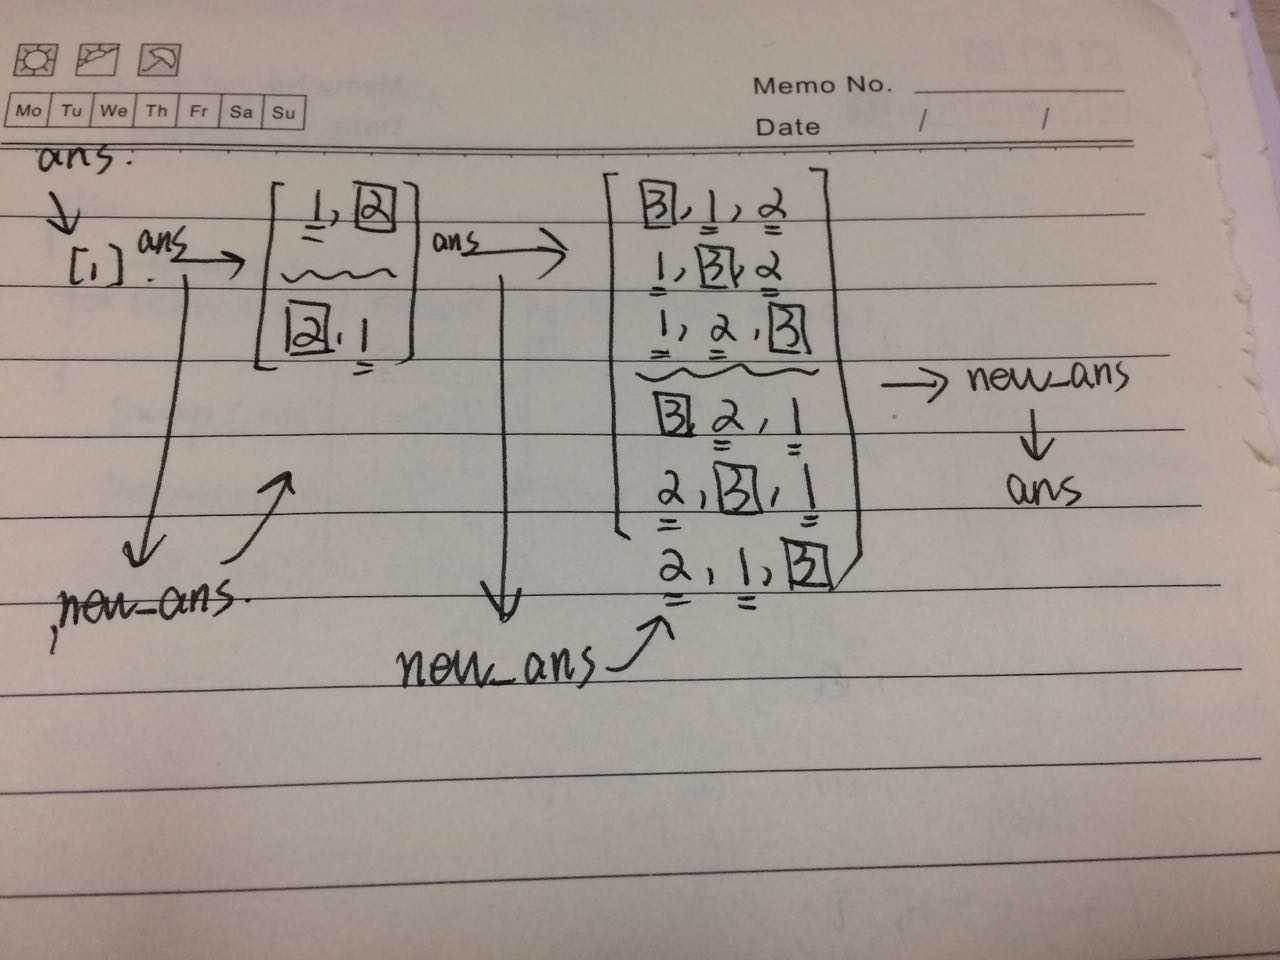 Memo No.
Mo Tu We Th Fr Sa Su
Date / /
ans.
[1] . ans
1, 2
2, 1
ans
3, 1, 2
1, 3, 2
1, 2, 3
3, 2, 1
2, 3, 1
2, 1, 3
new_ans
ans
new_ans.
new_ans